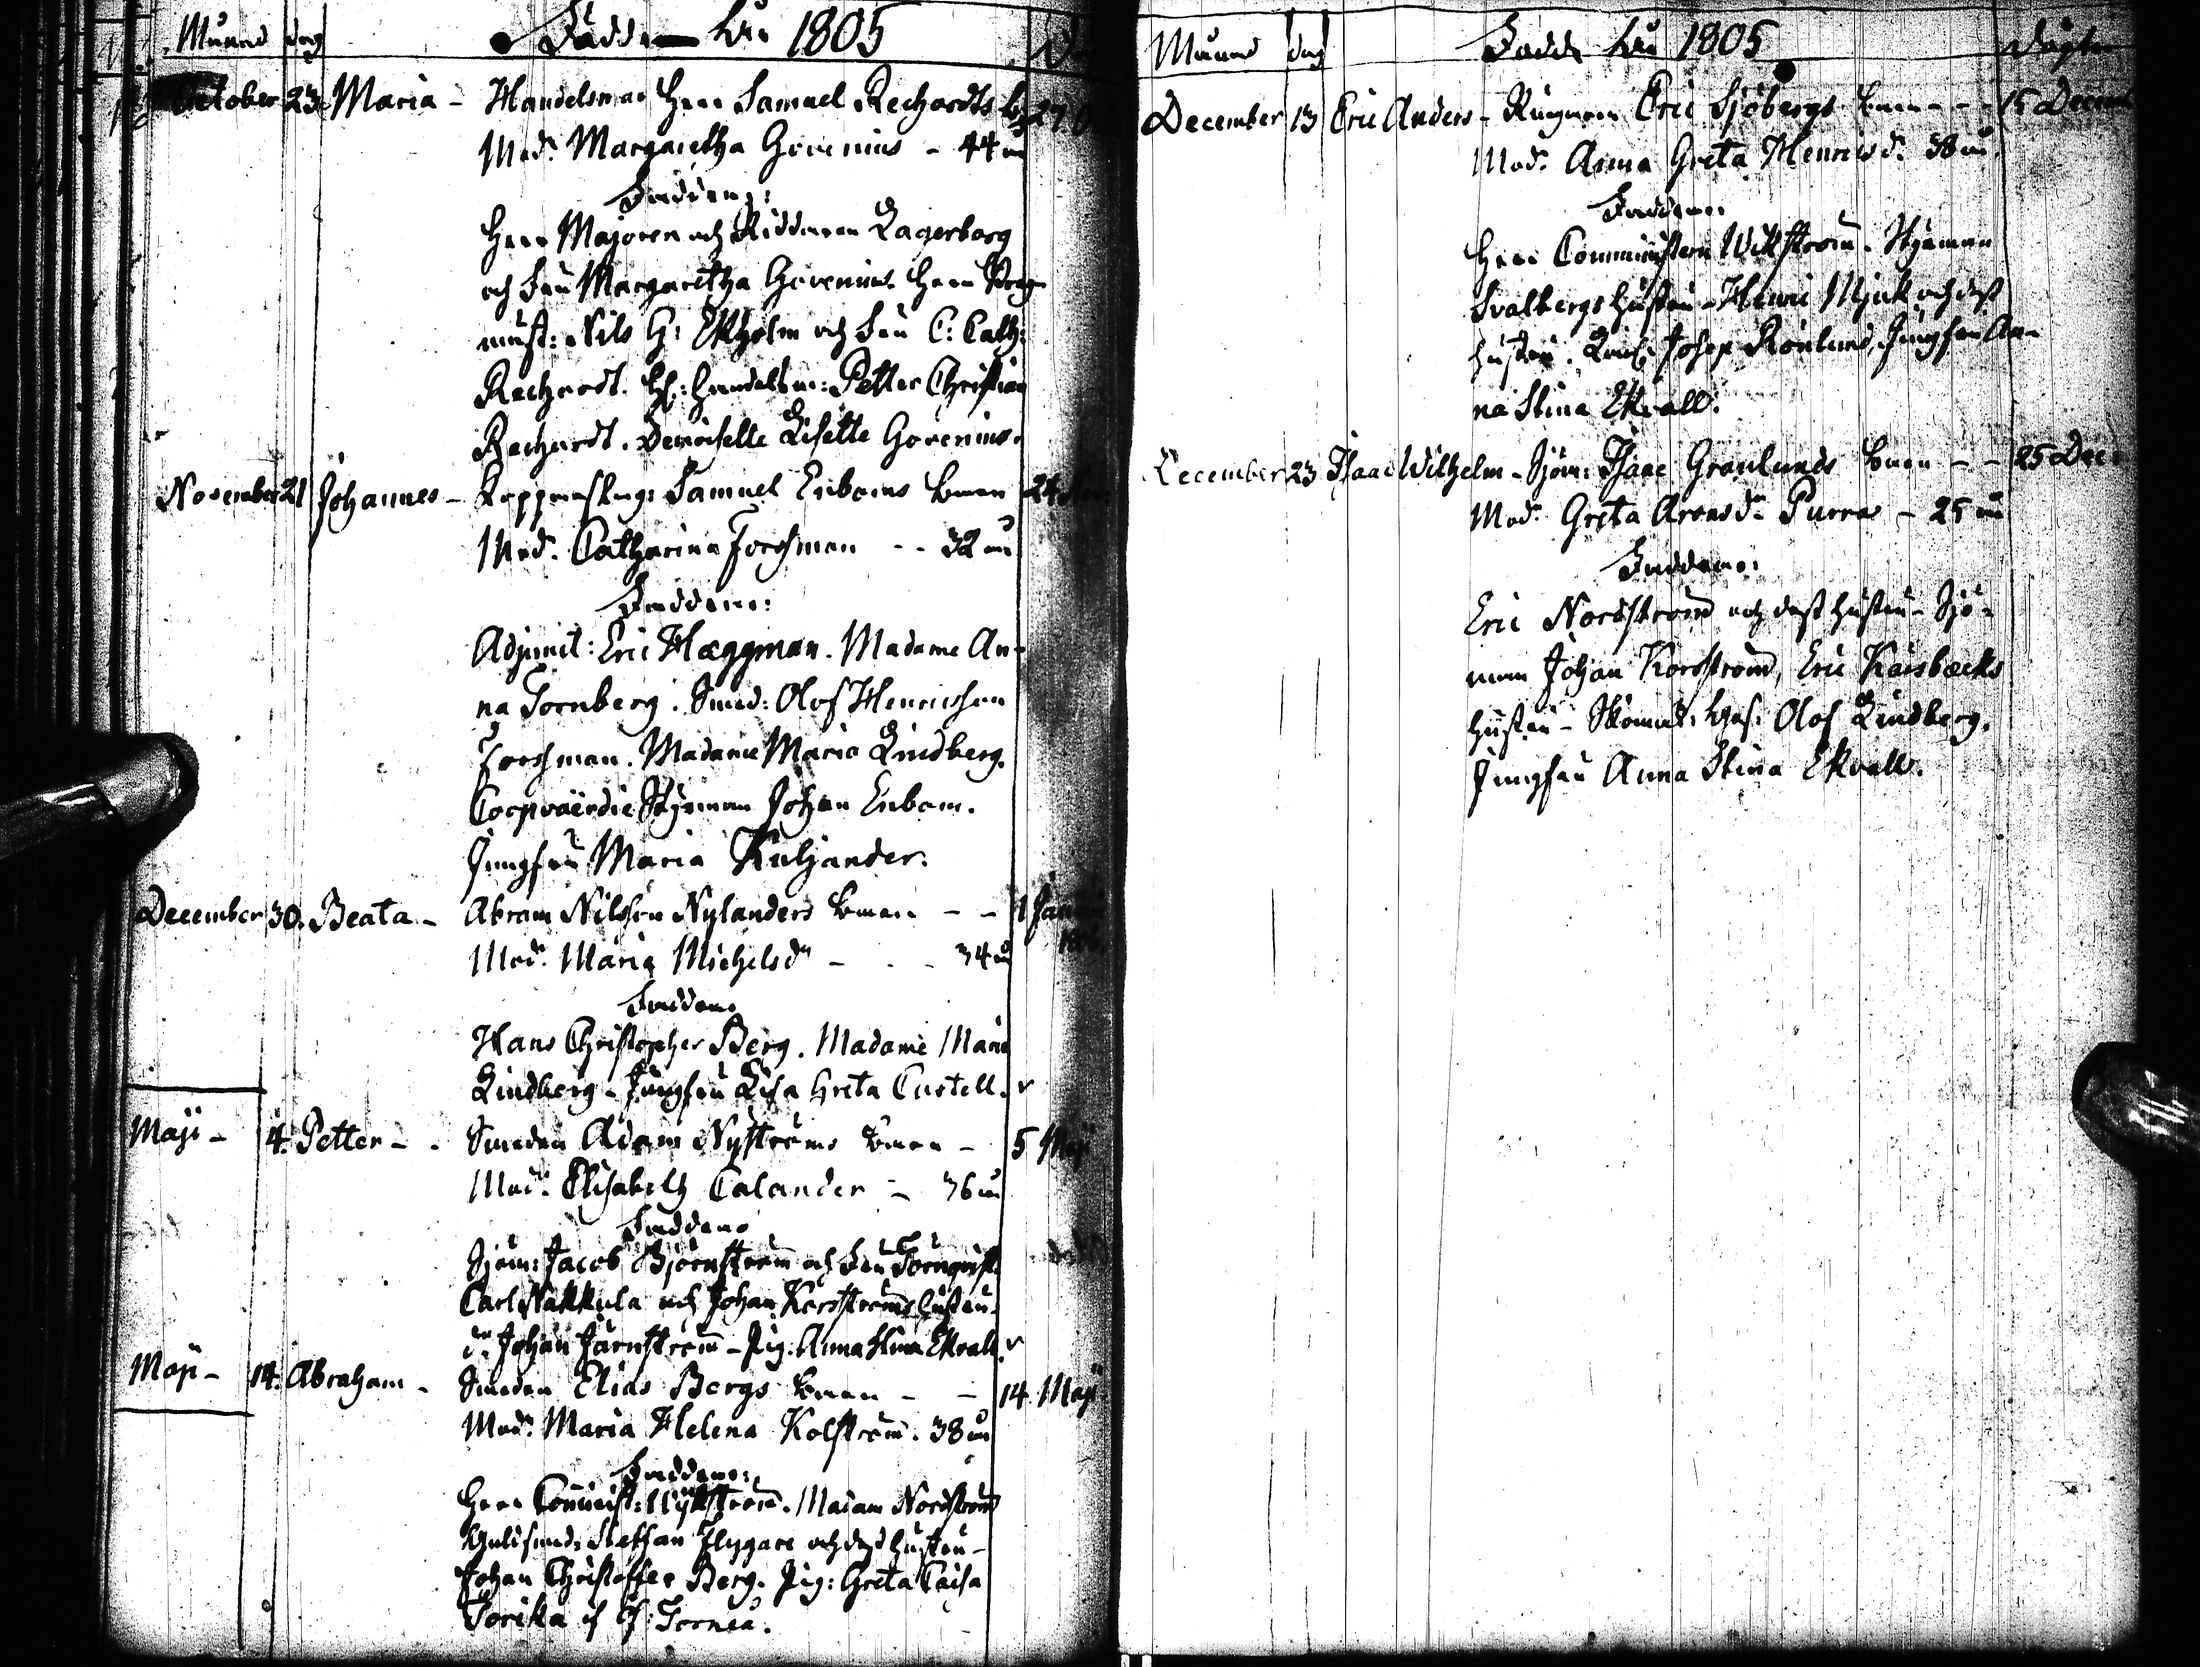 Månad dag Födde År 1805
October 23 Maria - Handelsman Herr Samuel Rechardts 27
Mod: Margaretha Govenius - 44 år
Faddrar:
Herr Majoren och Riddaren Lagerborg
och Fru Margaretha Govenius. Herr
Nils G: Ekholm och Fru C: Cath:
Rechardt. Handelsm: Petter Christian
Rechardt. Demoiselle Lisette Govenius.
November 21 Johannes - Kopparslag: Samuel Enboms barn 24 Nov
Mod: Catharina Forssman - - 32 år
Faddrar:
Adjunct: Eric Hæggman. Madame An-
na Tornberg. Smed: Olof Henricsson
Forssman. Madame Maria Lindberg.
Coopvaerdie Styrman Johan Enbom.
Jungfru Maria Kuljander.
December 30. Beata - Abram Nilsson Nylanders barn - - 1 Janu
Mod: Maria Michelsdr - - - 34 år
Faddrar
Hans Christopher Berg. Madame Maria
Lindberg - Jungfru Lisa Greta Castell.
Maji - 4. Petter - - Smeden Adam Nyströms barn - 5 Maji
Mod: Elisabeth Calander - 36 år
Faddrar
Sjöm: Jacob Björnström och Fru Törnqvist.
Carl Nakkula och Johan Korsströms hustru.
dr Johan Järnström - Pig: Anna Stina Ekvall.
Maji - 14. Abraham - Smeden Elias Bergs barn - - 14 Maji
Mod: Maria Helena Kolström. 38 år
Faddrar:
Herr Comminist: Wikström. Madam Nordström
Guldsmed: Staffan Flygare och dess hustru -
Johan Christoffer Berg. Pig: Greta Caisa
Torikka Torneå.
Månad dag Födde År 1805 Döpte
December 13 Eric Anders - Ringaren Eric Sjöbergs barn - - - 15 Decemb
Mod: Anna Greta Henricsdr 38 år.
Faddrar:
Herr Comministern Wikström. Styrman
Svalbergs hustru - Henric Mjuk och dess
hustru. Johan Rönlund, Jungfru An-
na Stina Ekvall.
December 23 Isaac Wilhelm - Sjöm: Isaac Grönlunds barn - - 25 Dec:
Mod: Greta Arvasdr Purra - 25 år
Faddrar:
Eric Nordström och dess hustru - Sjö-
man Johan Korsström, Eric Karsbæcks
hustru - Skomak: Olof Lindberg.
Jungfru Anna Stina Ekvall.